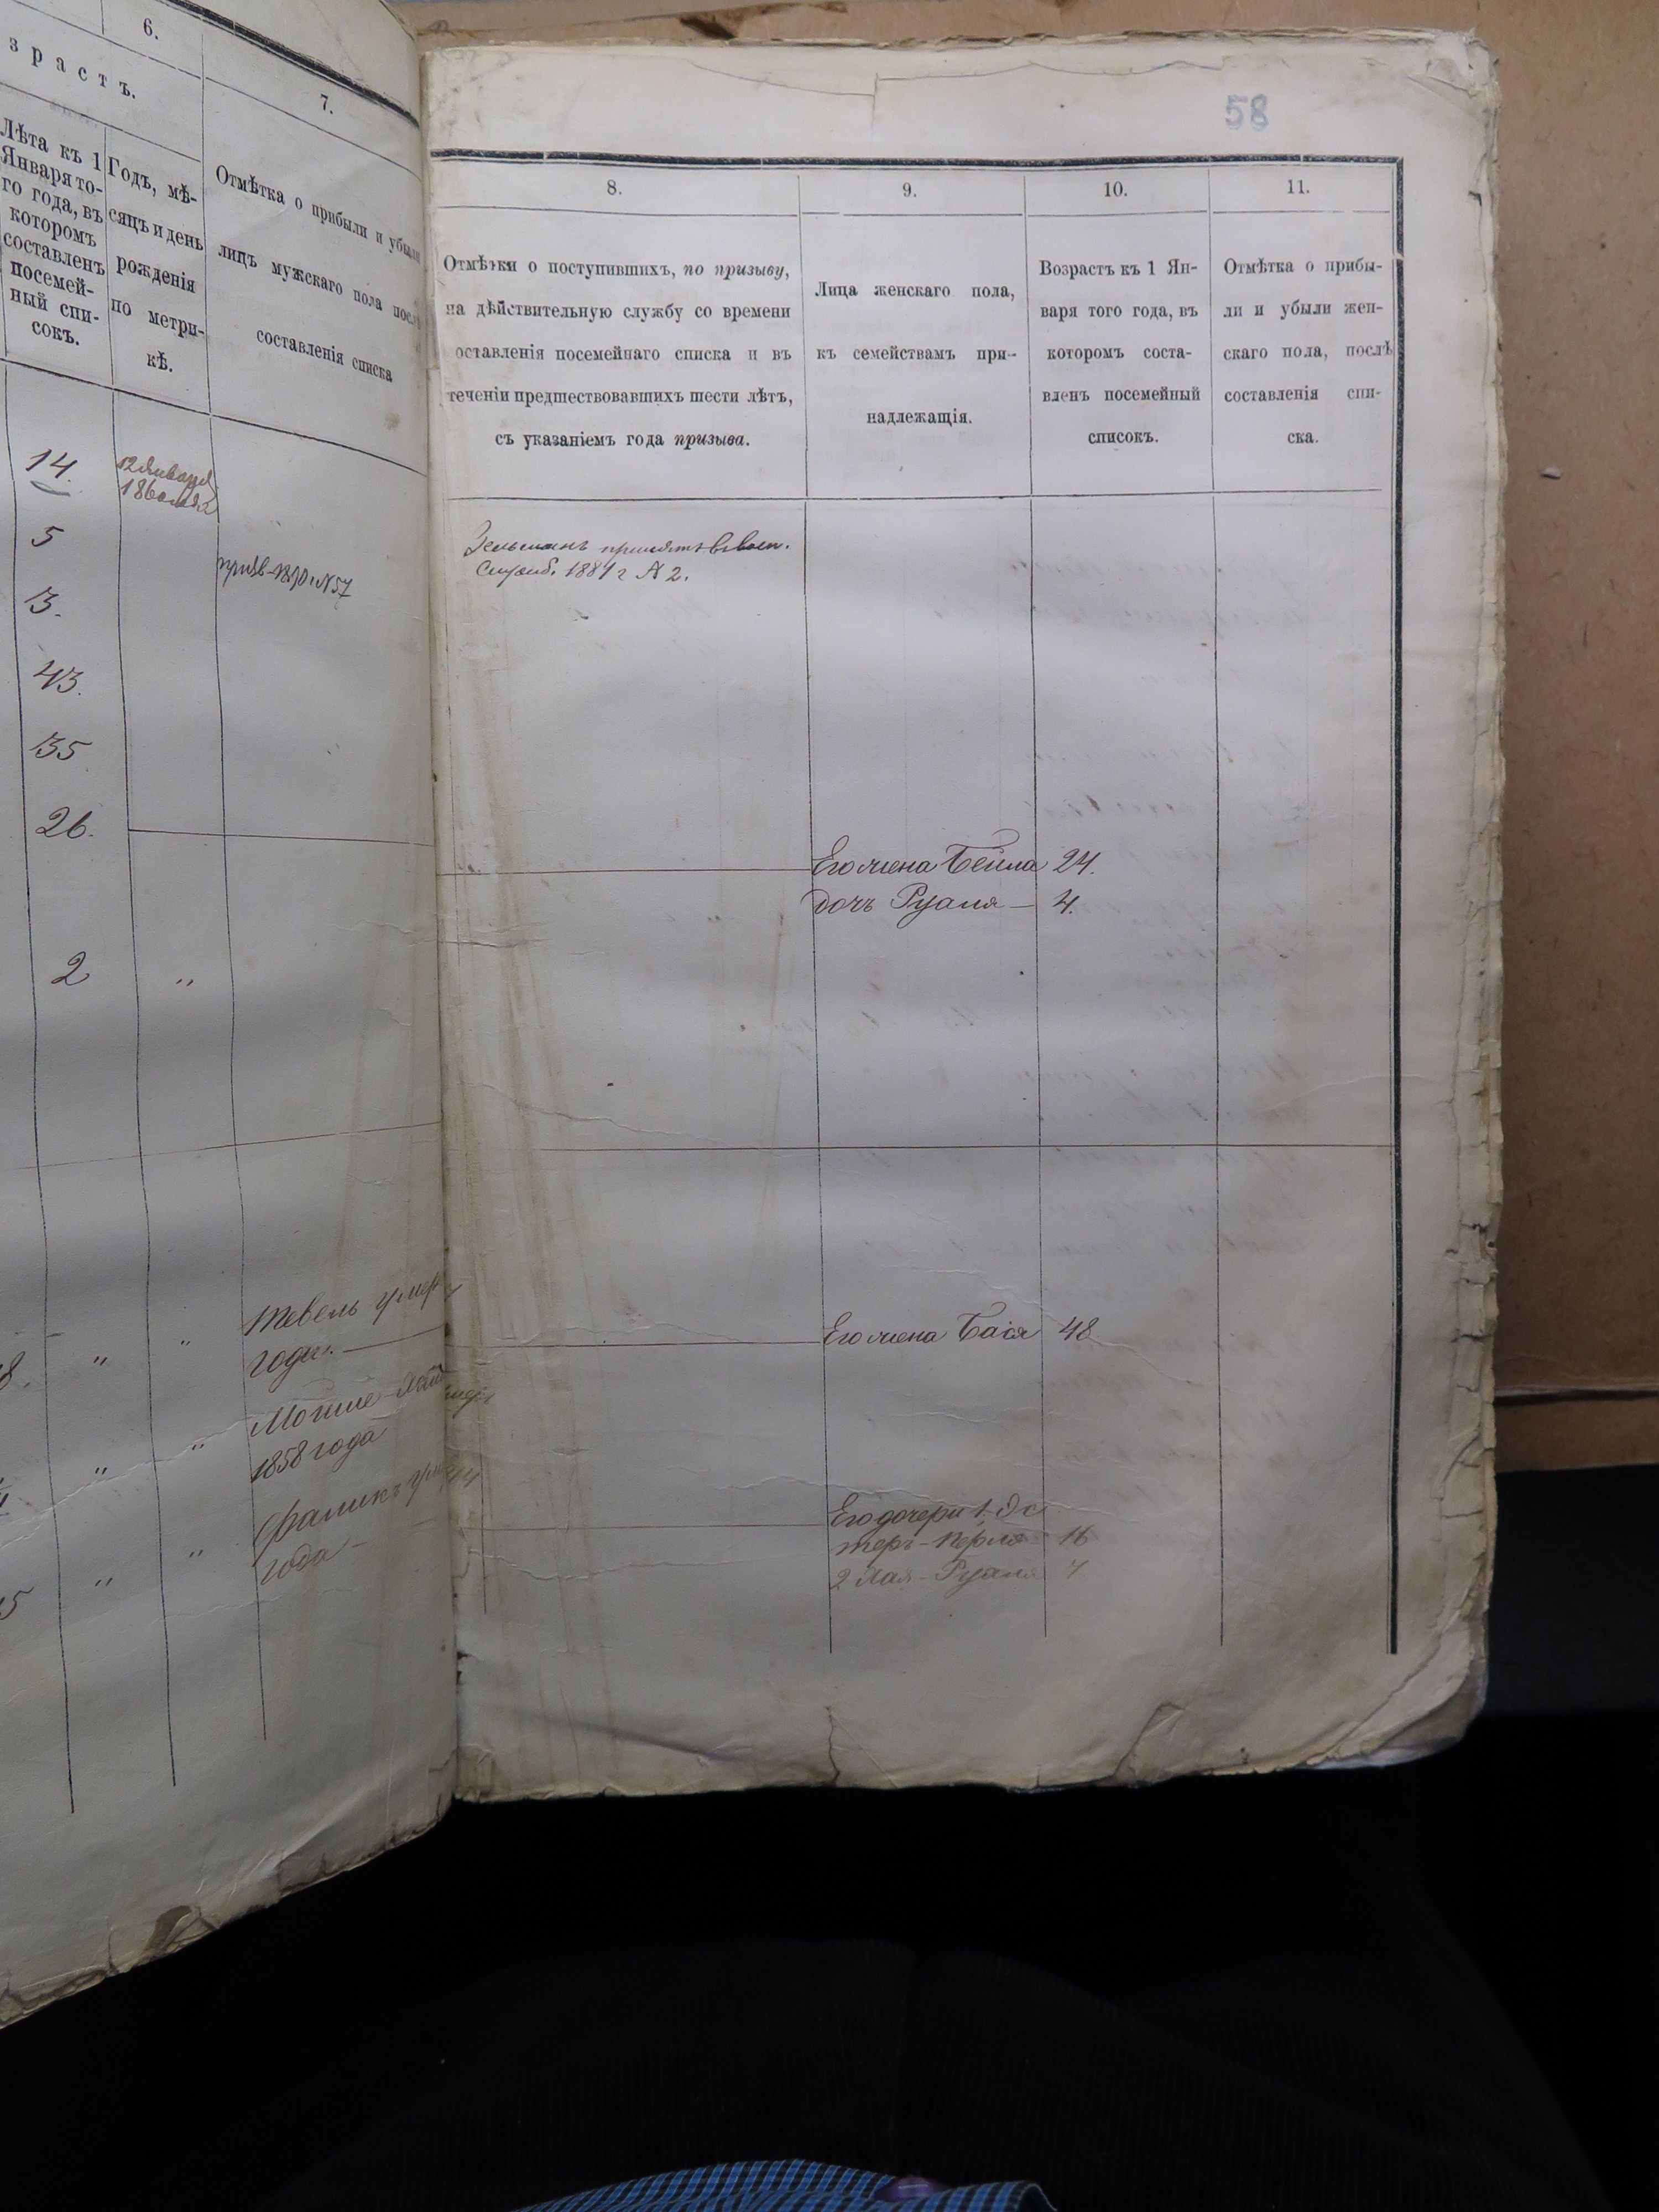 6.
зрастъ.
7.
Лѣта къ 1
Января то-
го года, въ
которомъ
составленъ
посемей-
ный спи-
сокъ.
Годъ, мѣ-
сяцъ и день
рожденія
по метри-
кѣ.
Отмѣтка о прибыли и убыли
лицъ мужскаго пола послѣ
составленія списка
14.
12 Января
5
13.
43.
35
26.
2 "
Тевель умер
года.
" "
Мошие
1858 года
" "
Фаликъ
года
" "
5
58
8.
Отмѣтки о поступившихъ, по призыву,
на дѣйствительную службу со времени
оставленія посемейнаго списка и въ
теченіи предшествовавшихъ шести лѣтъ,
съ указаніемъ года призыва.
9.
Лица женскаго пола,
къ семействамъ при-
надлежащія.
10.
Возрастъ къ 1 Ян-
варя того года, въ
которомъ соста-
вленъ посемейный
списокъ.
11.
Отмѣтка о прибы-
ли и убыли жен-
скаго пола, послѣ
составленія спи-
ска.
Зельманъ принятъ въ воен.
Служб. 1881 г № 2.
Его жена Бейла 24.
дочь Рухля — 4.
Его жена Бася 48
Его дочери 1. Эс
теръ - Перля 16
2 Хая - Рухля 7